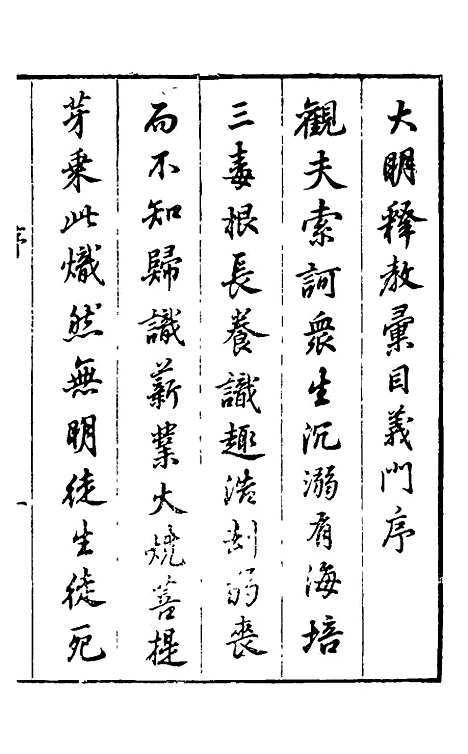 大明釋教彙目義門序
觀夫索訶衆生沉溺有海培
三毒根長養識趣浩刦溺喪
而不知歸識薪業火燒菩提
芽乘此熾然無明徒生徒死
序
一